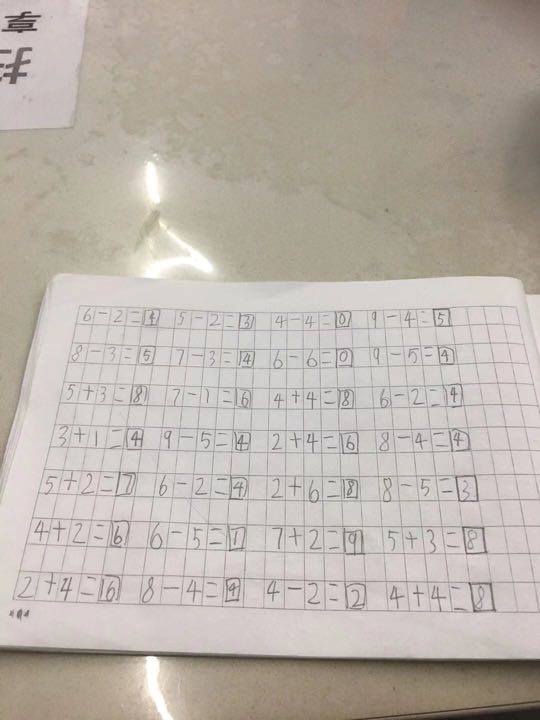 享
扫
6-2=4 5-2=3 4-4=0 9-4=5
8-3=5 7-3=4 6-6=0 9-5=4
5+3=8 7-1=6 4+4=8 6-2=4
3+1=4 9-5=4 2+4=6 8-4=4
5+2=7 6-2=4 2+6=8 8-5=3
4+2=6 6-5=1 7+2=9 5+3=8
2+4=6 8-4=4 4-2=2 4+4=8